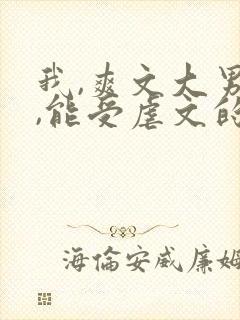 我,爽文大男
,能受虐文的
海倫安威廉姆